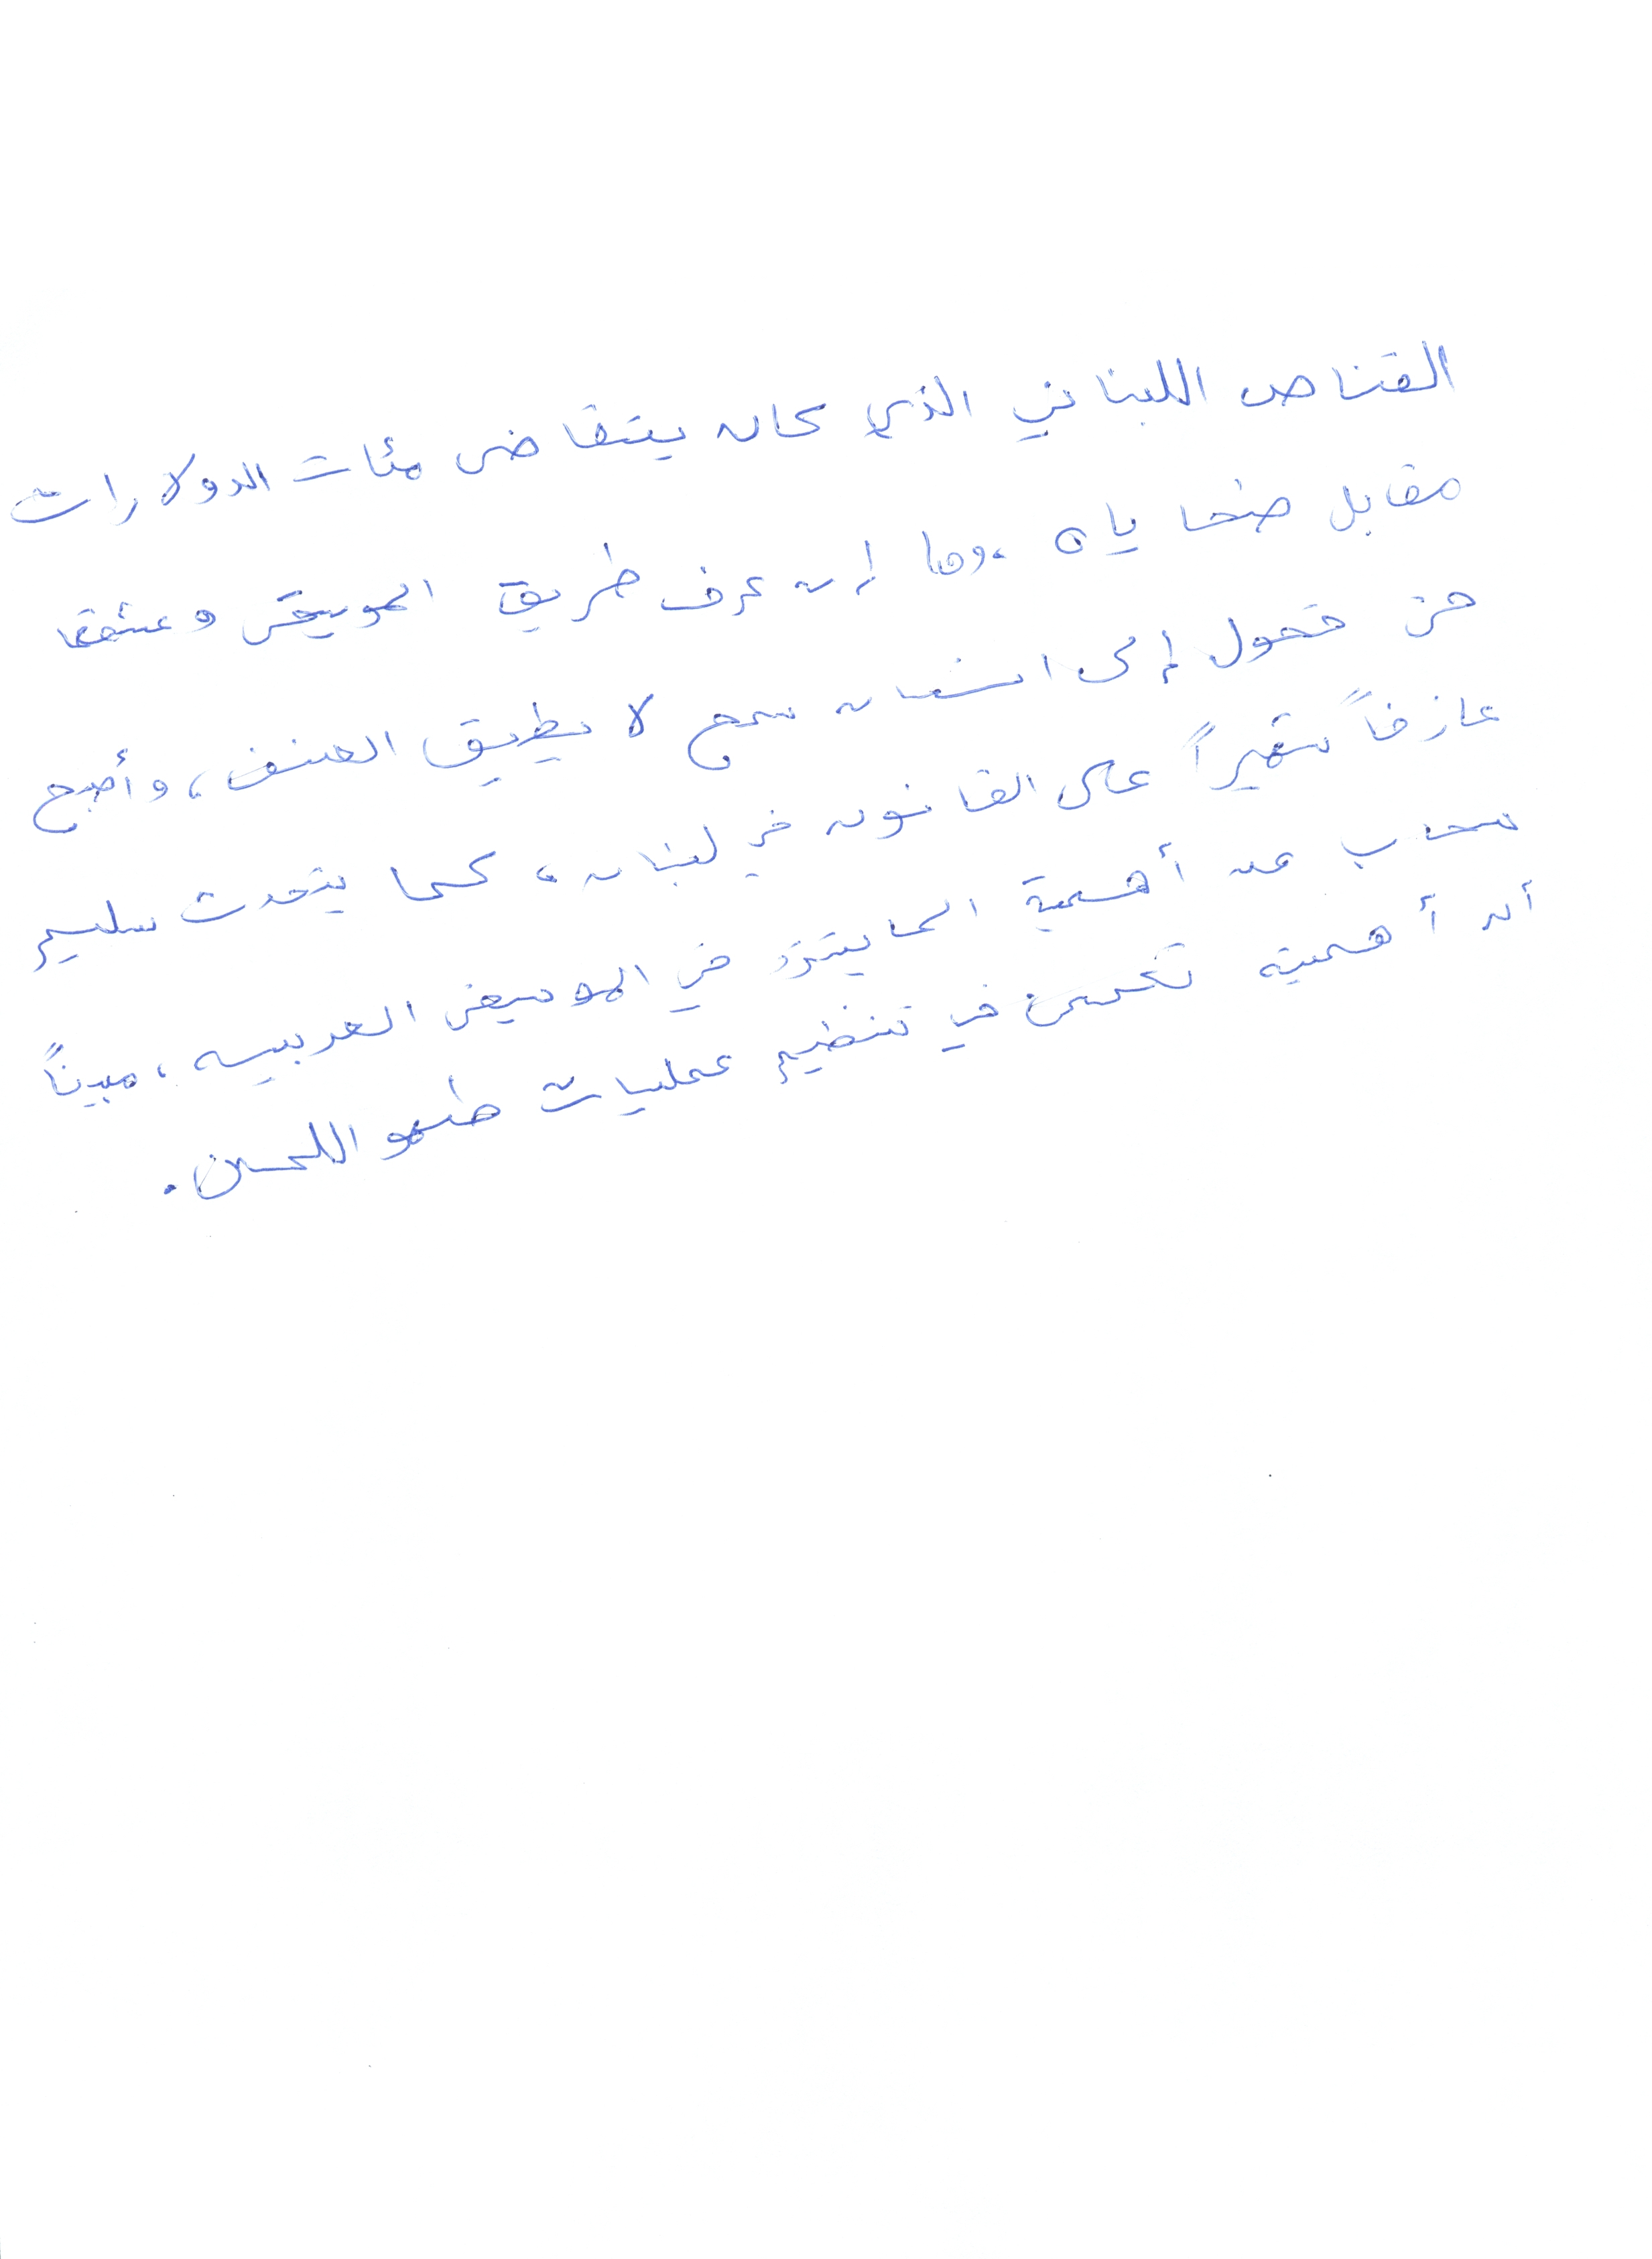 القناص اللبناني الذي كان يتقاضى مئات الدولارات
مقابل ضحاياه، وما إن عرف طريق الموسيقى وعشقها
حتى تحول إلى انسان سمح لا يطيق العنف، وأصبح
عازفاً شهيراً على القانون في لبنان، كما يتحدث سليم
سحاب عن أهمية المايسترو في الموسيقى العربيه، مبيناً
أن أهميته تكمن في تنظيم عمليات اللحن.